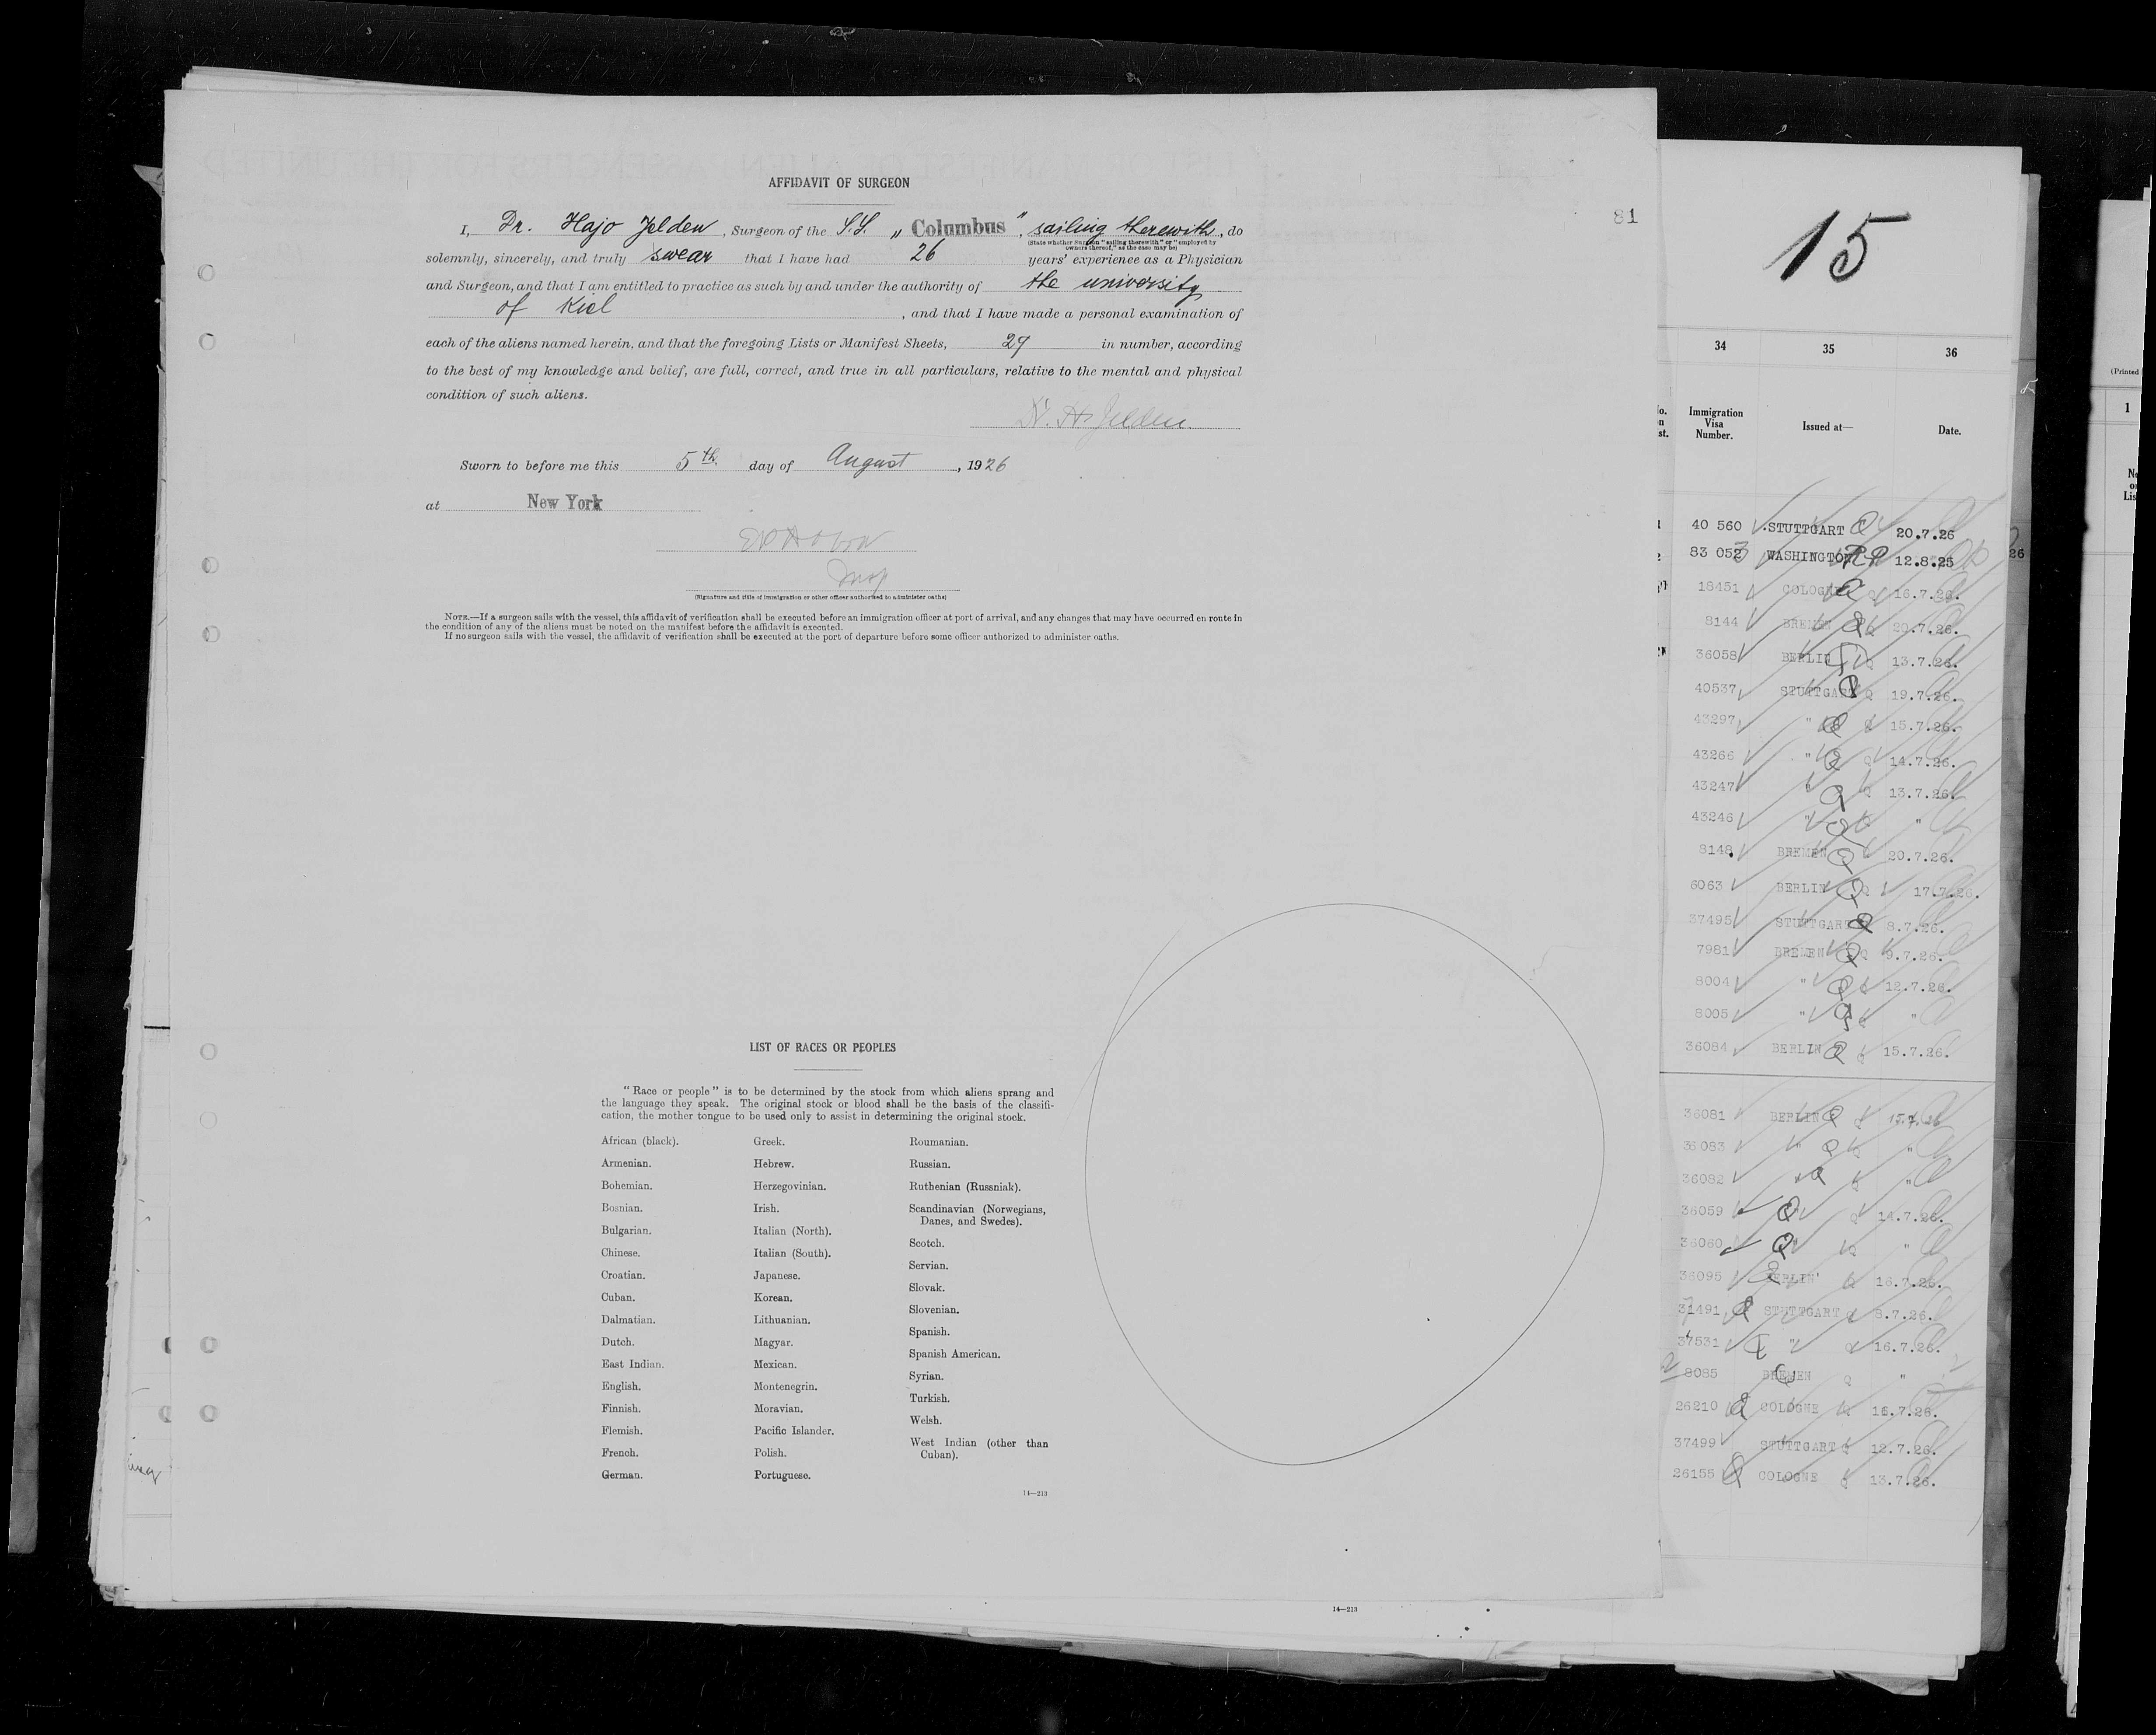 AFFIDAVIT OF SURGEON
81
I, Dr. Hajo Jelden, Surgeon of the S.S. „Columbus", sailing therewith, do
(State whether Surgeon "sailing therewith" or "employed by
owners thereof," as the case may be)
solemnly, sincerely, and truly swear that I have had 26 years' experience as a Physician
and Surgeon, and that I am entitled to practice as such by and under the authority of the university
of Kiel, and that I have made a personal examination of
each of the aliens named herein, and that the foregoing Lists or Manifest Sheets, 29 in number, according
to the best of my knowledge and belief, are full, correct, and true in all particulars, relative to the mental and physical
condition of such aliens.
Dr. H. Jelden
Sworn to before me this 5th day of August, 1926
at New York
Insp
(Signature and title of immigration or other officer authorized to administer oaths)
NOTE.—If a surgeon sails with the vessel, this affidavit of verification shall be executed before an immigration officer at port of arrival, and any changes that may have occurred en route in
the condition of any of the aliens must be noted on the manifest before the affidavit is executed.
If no surgeon sails with the vessel, the affidavit of verification shall be executed at the port of departure before some officer authorized to administer oaths.
LIST OF RACES OR PEOPLES
"Race or people" is to be determined by the stock from which aliens sprang and
the language they speak. The original stock or blood shall be the basis of the classifi-
cation, the mother tongue to be used only to assist in determining the original stock.
African (black).
Armenian.
Bohemian.
Bosnian.
Bulgarian.
Chinese.
Croatian.
Cuban.
Dalmatian.
Dutch.
East Indian.
English.
Finnish.
Flemish.
French.
German.
Greek.
Hebrew.
Herzegovinian.
Irish.
Italian (North).
Italian (South).
Japanese.
Korean.
Lithuanian.
Magyar.
Mexican.
Montenegrin.
Moravian.
Pacific Islander.
Polish.
Portuguese.
Roumanian.
Russian.
Ruthenian (Russniak).
Scandinavian (Norwegians,
Danes, and Swedes).
Scotch.
Servian.
Slovak.
Slovenian.
Spanish.
Spanish American.
Syrian.
Turkish.
Welsh.
West Indian (other than
Cuban).
14—213
15
34 35 36
Immigration
Visa
Number.
Issued at—
Date.
40 560 STUTTGART 20.7.26
83 052 WASHINGTON 12.8.25
18451 COLOGNE 16.7.26.
8144 BREMEN 20.7.26.
36058 BERLIN 13.7.26.
40537 STUTTGART 19.7.26.
43297 " 15.7.26.
43266 " 14.7.26.
43247 " 13.7.26.
43246 " "
8148 BREMEN 20.7.26.
6063 BERLIN 17.7.26.
37495 STUTTGART 8.7.26.
7981 BREMEN 9.7.26.
8004 " 12.7.26.
8005 " "
36084 BERLIN 15.7.26.
36081 BERLIN 15.7.26
36083 " "
36082 " "
36059 " 14.7.26.
36060 " "
36095 BERLIN 16.7.26.
31491 STUTTGART 8.7.26.
37531 " 16.7.26.
8085 BREMEN "
26210 COLOGNE 16.7.26.
37499 STUTTGART 12.7.26.
26155 COLOGNE 13.7.26.
14—213
(Printed
1